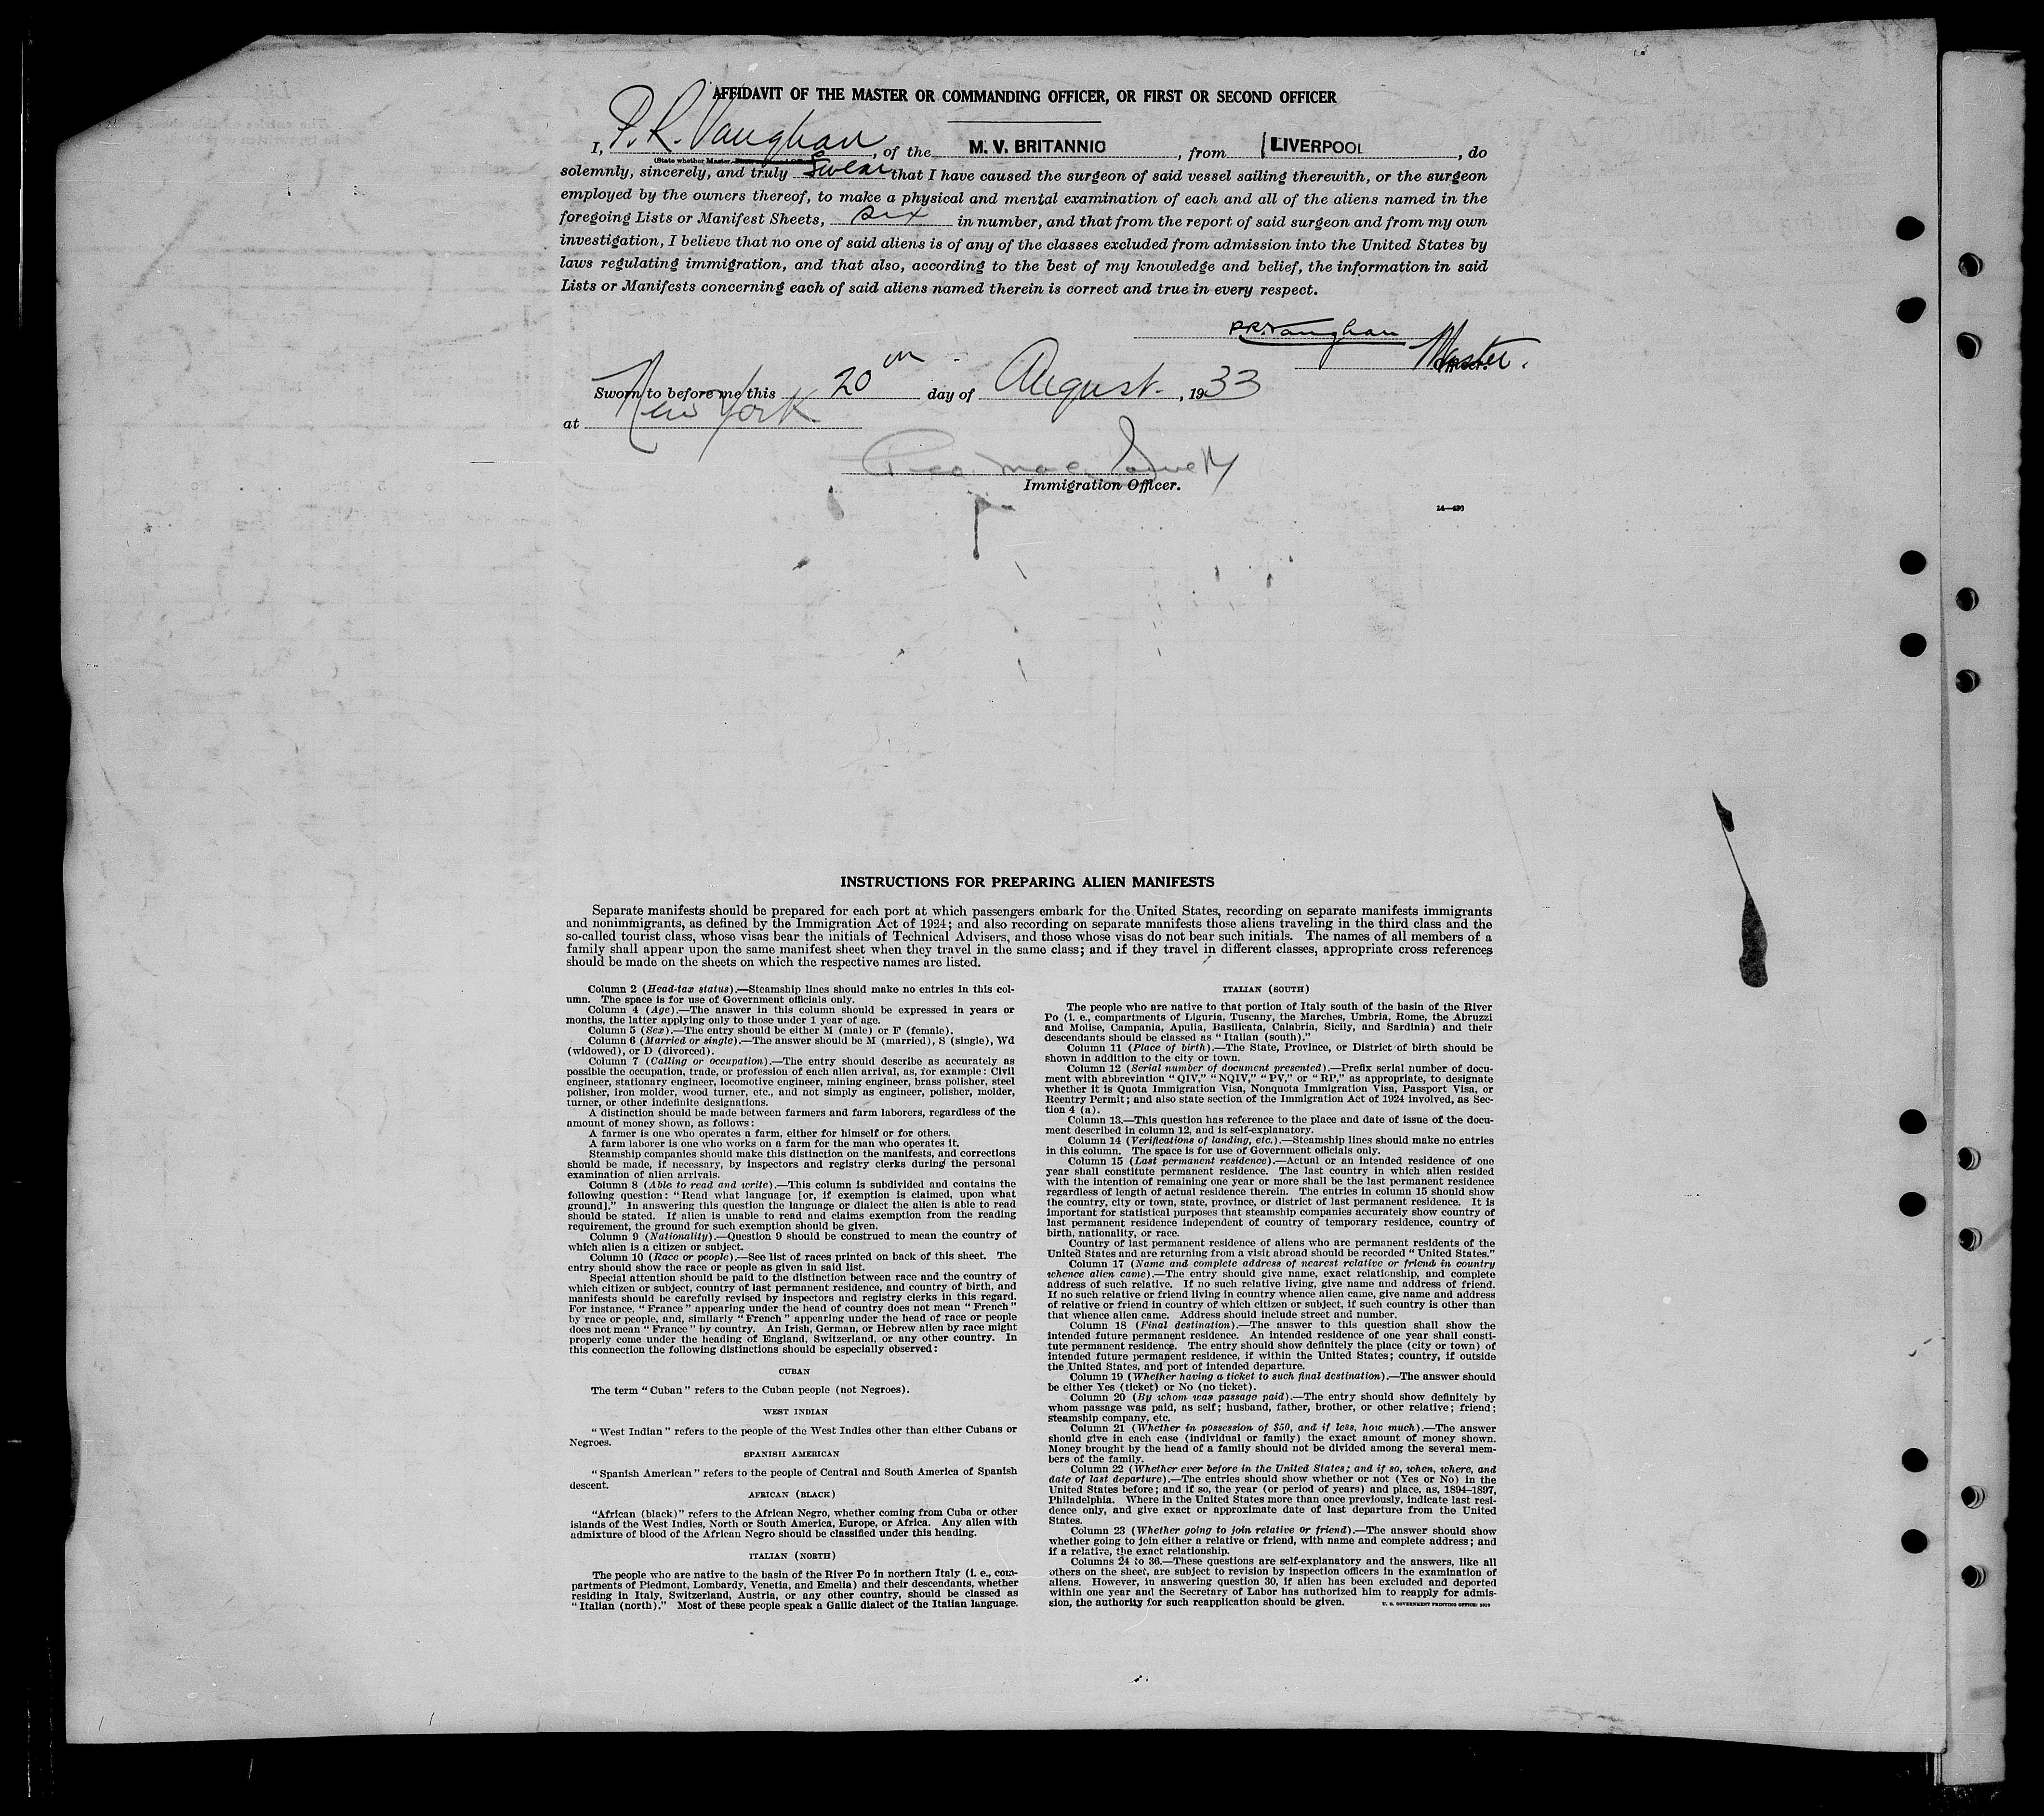 AFFIDAVIT OF THE MASTER OR COMMANDING OFFICER, OR FIRST OR SECOND OFFICER
I, P. R. Vaughan, of the M. V. BRITANNIC, from LIVERPOOL, do
(State whether Master,
solemnly, sincerely, and truly swear that I have caused the surgeon of said vessel sailing therewith, or the surgeon
employed by the owners thereof, to make a physical and mental examination of each and all of the aliens named in the
foregoing Lists or Manifest Sheets, six in number, and that from the report of said surgeon and from my own
investigation, I believe that no one of said aliens is of any of the classes excluded from admission into the United States by
laws regulating immigration, and that also, according to the best of my knowledge and belief, the information in said
Lists or Manifests concerning each of said aliens named therein is correct and true in every respect.
P.R. Vaughan
Master.
Sworn to before me this 20th day of August, 1933
at New York
Immigration Officer.
14—430
INSTRUCTIONS FOR PREPARING ALIEN MANIFESTS
Separate manifests should be prepared for each port at which passengers embark for the United States, recording on separate manifests immigrants
and nonimmigrants, as defined by the Immigration Act of 1924; and also recording on separate manifests those aliens traveling in the third class and the
so-called tourist class, whose visas bear the initials of Technical Advisers, and those whose visas do not bear such initials. The names of all members of a
family shall appear upon the same manifest sheet when they travel in the same class; and if they travel in different classes, appropriate cross references
should be made on the sheets on which the respective names are listed.
Column 2 (Head-tax status).—Steamship lines should make no entries in this col-
umn. The space is for use of Government officials only.
Column 4 (Age).—The answer in this column should be expressed in years or
months, the latter applying only to those under 1 year of age.
Column 5 (Sex).—The entry should be either M (male) or F (female).
Column 6 (Married or single).—The answer should be M (married), S (single), Wd
(widowed), or D (divorced).
Column 7 (Calling or occupation).—The entry should describe as accurately as
possible the occupation, trade, or profession of each alien arrival, as, for example: Civil
engineer, stationary engineer, locomotive engineer, mining engineer, brass polisher, steel
polisher, iron molder, wood turner, etc., and not simply as engineer, polisher, molder,
turner, or other indefinite designations.
A distinction should be made between farmers and farm laborers, regardless of the
amount of money shown, as follows:
A farmer is one who operates a farm, either for himself or for others.
A farm laborer is one who works on a farm for the man who operates it.
Steamship companies should make this distinction on the manifests, and corrections
should be made, if necessary, by inspectors and registry clerks during the personal
examination of alien arrivals.
Column 8 (Able to read and write).—This column is subdivided and contains the
following question: "Read what language [or, if exemption is claimed, upon what
ground]." In answering this question the language or dialect the alien is able to read
should be stated. If alien is unable to read and claims exemption from the reading
requirement, the ground for such exemption should be given.
Column 9 (Nationality).—Question 9 should be construed to mean the country of
which alien is a citizen or subject.
Column 10 (Race or people).—See list of races printed on back of this sheet. The
entry should show the race or people as given in said list.
Special attention should be paid to the distinction between race and the country of
which citizen or subject, country of last permanent residence, and country of birth, and
manifests should be carefully revised by inspectors and registry clerks in this regard.
For instance, "France" appearing under the head of country does not mean "French"
by race or people, and, similarly "French" appearing under the head of race or people
does not mean "France" by country. An Irish, German, or Hebrew alien by race might
properly come under the heading of England, Switzerland, or any other country. In
this connection the following distinctions should be especially observed:
CUBAN
The term "Cuban" refers to the Cuban people (not Negroes).
WEST INDIAN
"West Indian" refers to the people of the West Indies other than either Cubans or
Negroes.
SPANISH AMERICAN
"Spanish American" refers to the people of Central and South America of Spanish
descent.
AFRICAN (BLACK)
"African (black)" refers to the African Negro, whether coming from Cuba or other
islands of the West Indies, North or South America, Europe, or Africa. Any alien with
admixture of blood of the African Negro should be classified under this heading.
ITALIAN (NORTH)
The people who are native to the basin of the River Po in northern Italy (i. e., com-
partments of Piedmont, Lombardy, Venetia, and Emelia) and their descendants, whether
residing in Italy, Switzerland, Austria, or any other country, should be classed as
"Italian (north)." Most of these people speak a Gallic dialect of the Italian language.
ITALIAN (SOUTH)
The people who are native to that portion of Italy south of the basin of the River
Po (i. e., compartments of Liguria, Tuscany, the Marches, Umbria, Rome, the Abruzzi
and Molise, Campania, Apulia, Basilicata, Calabria, Sicily, and Sardinia) and their
descendants should be classed as "Italian (south)."
Column 11 (Place of birth).—The State, Province, or District of birth should be
shown in addition to the city or town.
Column 12 (Serial number of document presented).—Prefix serial number of docu-
ment with abbreviation "QIV," "NQIV," "PV," or "RP," as appropriate, to designate
whether it is Quota Immigration Visa, Nonquota Immigration Visa, Passport Visa, or
Reentry Permit; and also state section of the Immigration Act of 1924 involved, as Sec-
tion 4 (a).
Column 13.—This question has reference to the place and date of issue of the docu-
ment described in column 12, and is self-explanatory.
Column 14 (Verifications of landing, etc.).—Steamship lines should make no entries
in this column. The space is for use of Government officials only.
Column 15 (Last permanent residence).—Actual or an intended residence of one
year shall constitute permanent residence. The last country in which alien resided
with the intention of remaining one year or more shall be the last permanent residence
regardless of length of actual residence therein. The entries in column 15 should show
the country, city or town, state, province, or district of last permanent residence. It is
important for statistical purposes that steamship companies accurately show country of
last permanent residence independent of country of temporary residence, country of
birth, nationality, or race.
Country of last permanent residence of aliens who are permanent residents of the
United States and are returning from a visit abroad should be recorded "United States."
Column 17 (Name and complete address of nearest relative or friend in country
whence alien came).—The entry should give name, exact relationship, and complete
address of such relative. If no such relative living, give name and address of friend.
If no such relative or friend living in country whence alien came, give name and address
of relative or friend in country of which citizen or subject, if such country is other than
that whence alien came. Address should include street and number.
Column 18 (Final destination).—The answer to this question shall show the
intended future permanent residence. An intended residence of one year shall consti-
tute permanent residence. The entry should show definitely the place (city or town) of
intended future permanent residence, if within the United States; country, if outside
the United States, and port of intended departure.
Column 19 (Whether having a ticket to such final destination).—The answer should
be either Yes (ticket) or No (no ticket).
Column 20 (By whom was passage paid).—The entry should show definitely by
whom passage was paid, as self; husband, father, brother, or other relative; friend;
steamship company, etc.
Column 21 (Whether in possession of $50, and if less, how much).—The answer
should give in each case (individual or family) the exact amount of money shown.
Money brought by the head of a family should not be divided among the several mem-
bers of the family.
Column 22 (Whether ever before in the United States; and if so, when, where, and
date of last departure).—The entries should show whether or not (Yes or No) in the
United States before; and if so, the year (or period of years) and place, as, 1894–1897,
Philadelphia. Where in the United States more than once previously, indicate last resi-
dence only, and give exact or approximate date of last departure from the United
States.
Column 23 (Whether going to join relative or friend).—The answer should show
whether going to join either a relative or friend, with name and complete address; and
if a relative, the exact relationship.
Columns 24 to 36.—These questions are self-explanatory and the answers, like all
others on the sheet, are subject to revision by inspection officers in the examination of
aliens. However, in answering question 30, if alien has been excluded and deported
within one year and the Secretary of Labor has authorized him to reapply for admis-
sion, the authority for such reapplication should be given.
U. S. GOVERNMENT PRINTING OFFICE: